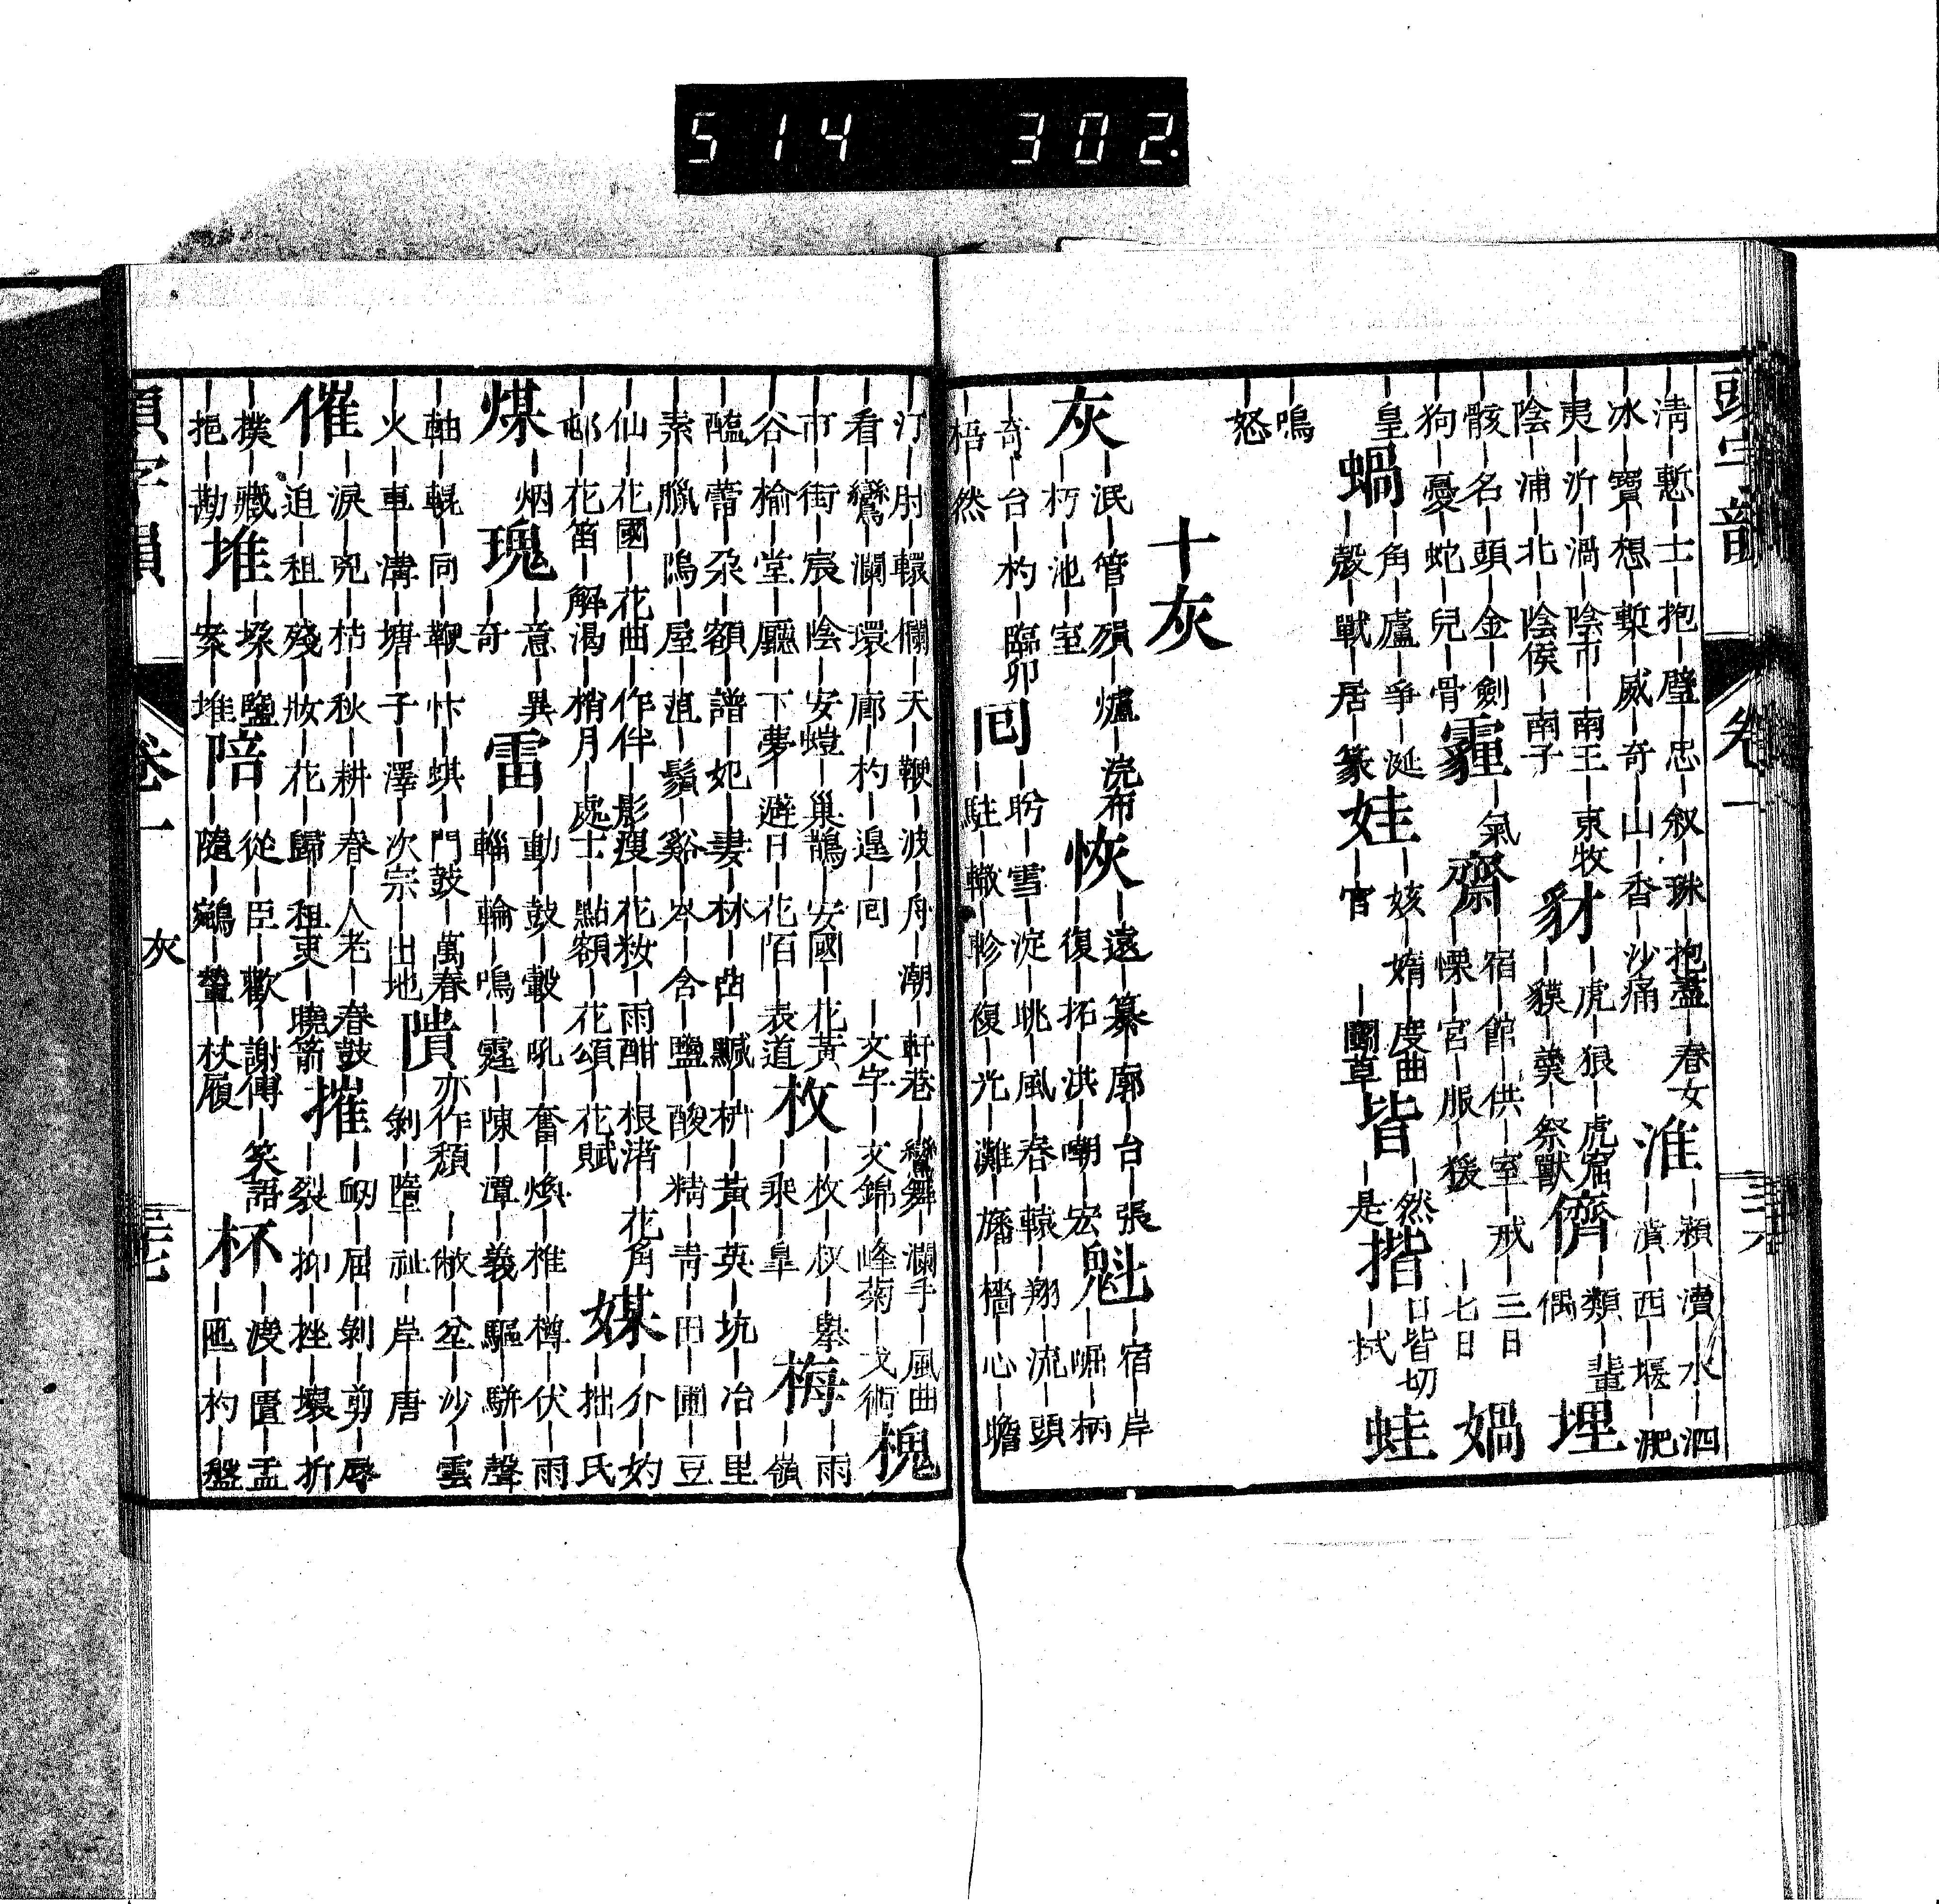 514 302.
頭字韻 卷一
｜清｜慙｜士｜抱｜璧｜忠｜叙｜珠｜抱｜春女 淮｜潁｜瀆｜水｜泗
｜冰｜寶｜想｜慙｜威｜奇｜山｜香｜沙痛 ｜濆｜西｜堰｜淝
｜夷｜沂｜渦｜陰市｜南王｜東牧 豺｜虎｜狼｜虎窟 儕｜類｜輩 埋
｜陰｜浦｜北｜陰侯｜南子 ｜貘｜羹｜祭獸 ｜偶
｜骸｜名｜頭｜金｜劍 霾｜氣 齋｜宿｜館｜供｜室｜戒｜三日 媧
｜狗｜憂｜蛇｜兒｜骨 ｜慄｜宮｜服｜猨 ｜七日
｜皇 蝸｜角｜廬｜爭｜涎 娃｜姟｜嫷｜度曲 皆｜然 揩｜口皆切 蛙
｜殼｜戰｜居｜篆 ｜宮 ｜鬭草 ｜是 ｜拭
｜鳴
｜怒
十灰
灰｜泯｜管｜殞｜爐｜浣布 恢｜遠｜纂｜廓｜台｜張 魁｜宿｜岸
｜朽｜池｜室 ｜復｜拓｜洪｜嘲｜宏 ｜堀｜柄
｜奇｜台｜杓｜臨卯 囘｜盻｜雪｜淀｜眺｜風｜春｜轅｜翔｜流｜頭
｜梧｜然 ｜駐｜轍｜軫｜複｜光｜灘｜旛｜檣｜心｜蟾
｜汀｜肘｜轅｜欄｜天｜鞭｜波｜舟｜潮｜軒巷｜鸞舞｜瀾手｜風曲 槐
｜看｜鸞｜瀾｜環｜廊｜杓｜遑｜囘 ｜文字｜文錦｜峰菊｜戈術
｜市｜街｜宸｜陰｜安螘｜巢鵲｜安國｜花黃 枚｜枚｜叔｜擧 梅｜雨
｜谷｜榆｜堂｜廳｜下夢｜避日｜花陌｜表道 ｜乘｜皐 ｜嶺
｜醢｜蕾｜朶｜額｜譜｜妃｜妻｜林｜曲｜醎｜枡｜黃｜英｜坑｜冶｜里
｜素｜臘｜鳴｜屋｜菹｜鬚｜谿｜岑｜含｜鹽｜酸｜精｜靑｜田｜圃｜豆
｜仙｜花國｜花曲｜作伴｜影瘦｜花敉｜雨酣｜根渚｜花角 媒｜介｜妁
｜邨｜花笛｜解渴｜梢月｜處士｜點額｜花頌｜花賦 ｜拙｜氏
煤｜烟 瑰｜意｜異 雷｜動｜鼓｜轂｜吼｜奮｜煥｜椎｜樽｜伏｜雨
｜奇 ｜輜｜輪｜鳴｜霆｜陳｜潭｜義｜驅｜駢｜聲
｜軸｜輥｜同｜鞭｜忭｜蜞｜門鼓｜萬春 隤 亦作頹｜敝｜坌｜沙｜雲
｜火｜車｜溝｜塘｜子｜澤｜次宗｜出地 ｜剝｜墮｜祉｜岸｜唐
催｜淚｜兕｜枯｜秋｜耕｜春｜人老｜春鼓 摧｜衂｜屈｜剝｜剪｜辱
｜迫｜租｜殘｜妝｜花｜歸｜租吏｜曉箭 ｜裂｜抑｜挫｜壞｜折
｜撲｜藏 堆｜垜｜鹽 陪｜從｜臣｜歡｜謝傅｜笑語 杯｜渡｜匱｜盂
｜挹｜勘 ｜案｜堆 ｜隨｜鵷｜輦｜杖履 ｜匜｜杓｜盤
頭字韻 卷一 灰 三七